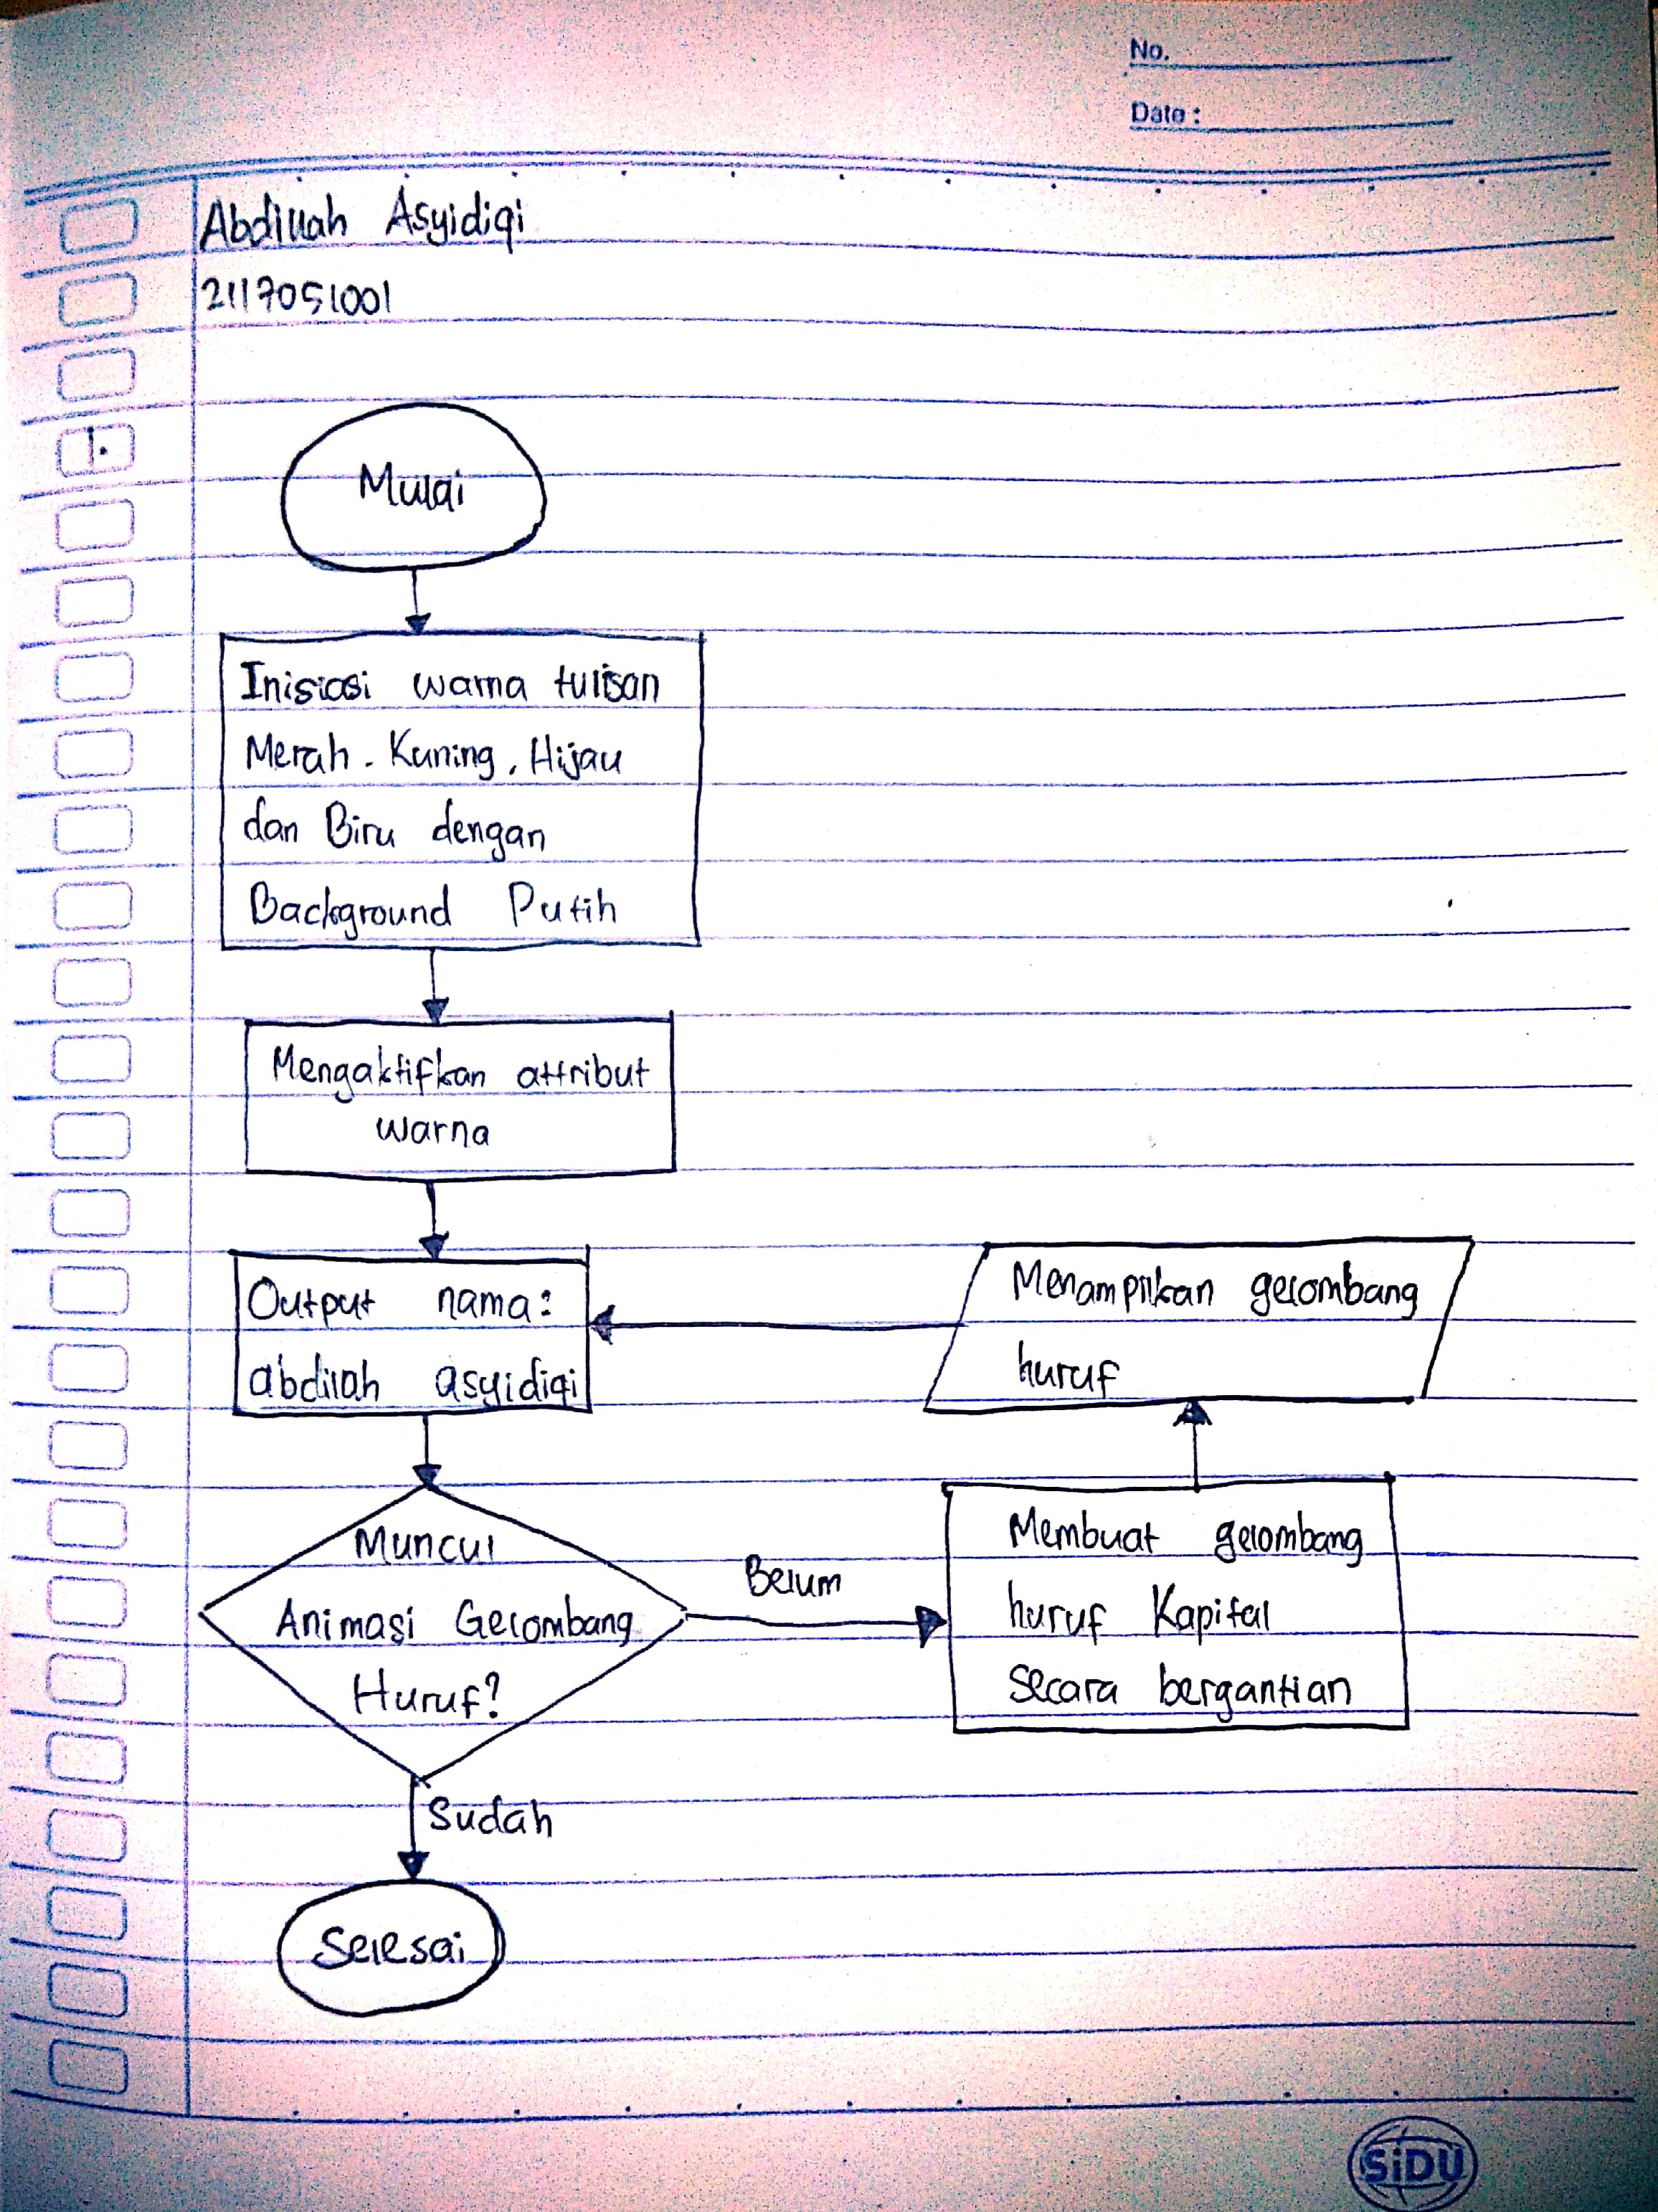 No.
Date :
Abdillah Asyidiqi
2117051001
1.
Mulai
Inisiasi warna tulisan
Merah. Kuning, Hijau
dan Biru dengan
Background Putih
Mengaktifkan attribut
warna
Output nama:
abdilah asyidiqi
Menampilkan gelombang
huruf
Muncul
Animasi Gelombang
Huruf?
Belum
Membuat gelombang
huruf Kapital
secara bergantian
Sudah
Selesai
SiDU